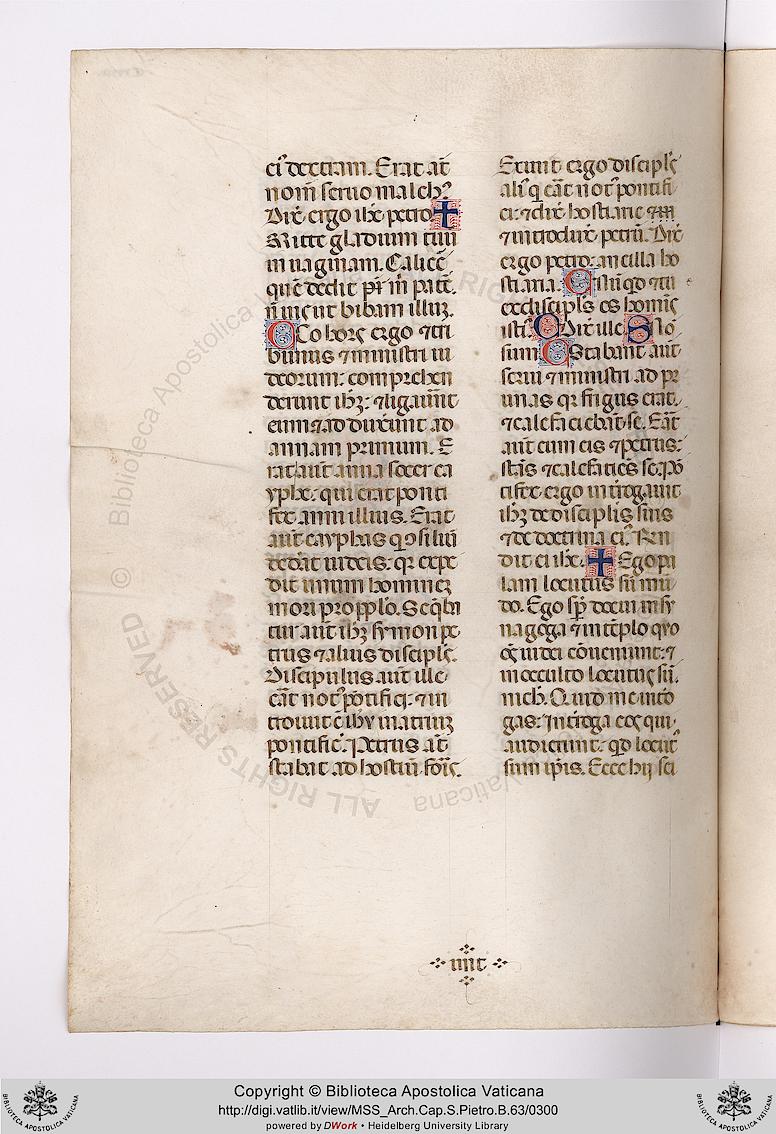 ei᷒ dextram. Erat aūt
nom̄ seruo malch᷒
Dix̄ ergo ihc̄ petro ✝
Mitte gladium tuū
in uaginam. Calicē
quē dedit pr̄ m̄ pat̄.
n̄ uis ut bibam illuꝫ.
C Cohors ergo ⁊ tri
bunus ⁊ ministri iu
deorum: comprehen
derunt ihꝫ: ⁊ ligauert̄
eum ⁊ adduxerunt ad
annam primum. E
rat aut̄ anna socer ca
yphe: qui erat ponti
fex anni illius. Erat
aut̄ cayphas qͻsiliū
dedāt iudeis: qꝛ expe
dit unum homineꝫ
mori pro pplō. Seqbā
tur aut̄ ihꝫ symon pe
trus ⁊ alius discipls̄.
Discipulus aut̄ ille
erāt not᷒ pōtifici: ⁊ in
troiuit c̄ ihu in atriuꝫ
pontific̄. Petrus at̄
stabat ad hostiū foris.
Exiuit ergo discipls̄
ali᷒ q erāt not᷒ pontifi
ci: ⁊ dix̄ hostiarie
⁊ introdux̄ petrū. Dix̄
ergo petro: ancilla ho
stiaria. C Nūqd ⁊ tu
ex discipls̄ es hominis
isti᷒ C Dix̄ ille. S Nō
sum C Stabant aut̄
serui ⁊ ministri ad pr
unas qꝛ frigus erat.
⁊ calefaciebāt se. Erāt
aut̄ cum eis ⁊ petrus:
stās ⁊ calefaciēs se. Pō
tifex ergo int̄rogauit
ihꝫ de discipls̄ suis
⁊ de doctrina ei᷒. Rn̄
dit ei ihc̄. ✝ Ego pa
lam locutus sū mū
do. Ego sp̄ docui in sy
nagoga ⁊ in tēplo quo
oēs iudei cōueniunt: ⁊
in occulto locutus sū.
nich. Quid me int̄ro
gas: Int̄roga eos qui
audierunt: qd locut᷒
sum ip̄is. Ecce hij sci
iiii t
© Biblioteca Apostolica Vaticana
ALL RIGHTS RESERVED
Copyright © Biblioteca Apostolica Vaticana
http://digi.vatlib.it/view/MSS_Arch.Cap.S.Pietro.B.63/0300
powered by DWork • Heidelberg University Library
BIBLIOTECA APOSTOLICA VATICANA
BIBLIOTECA APOSTOLICA VATICANA